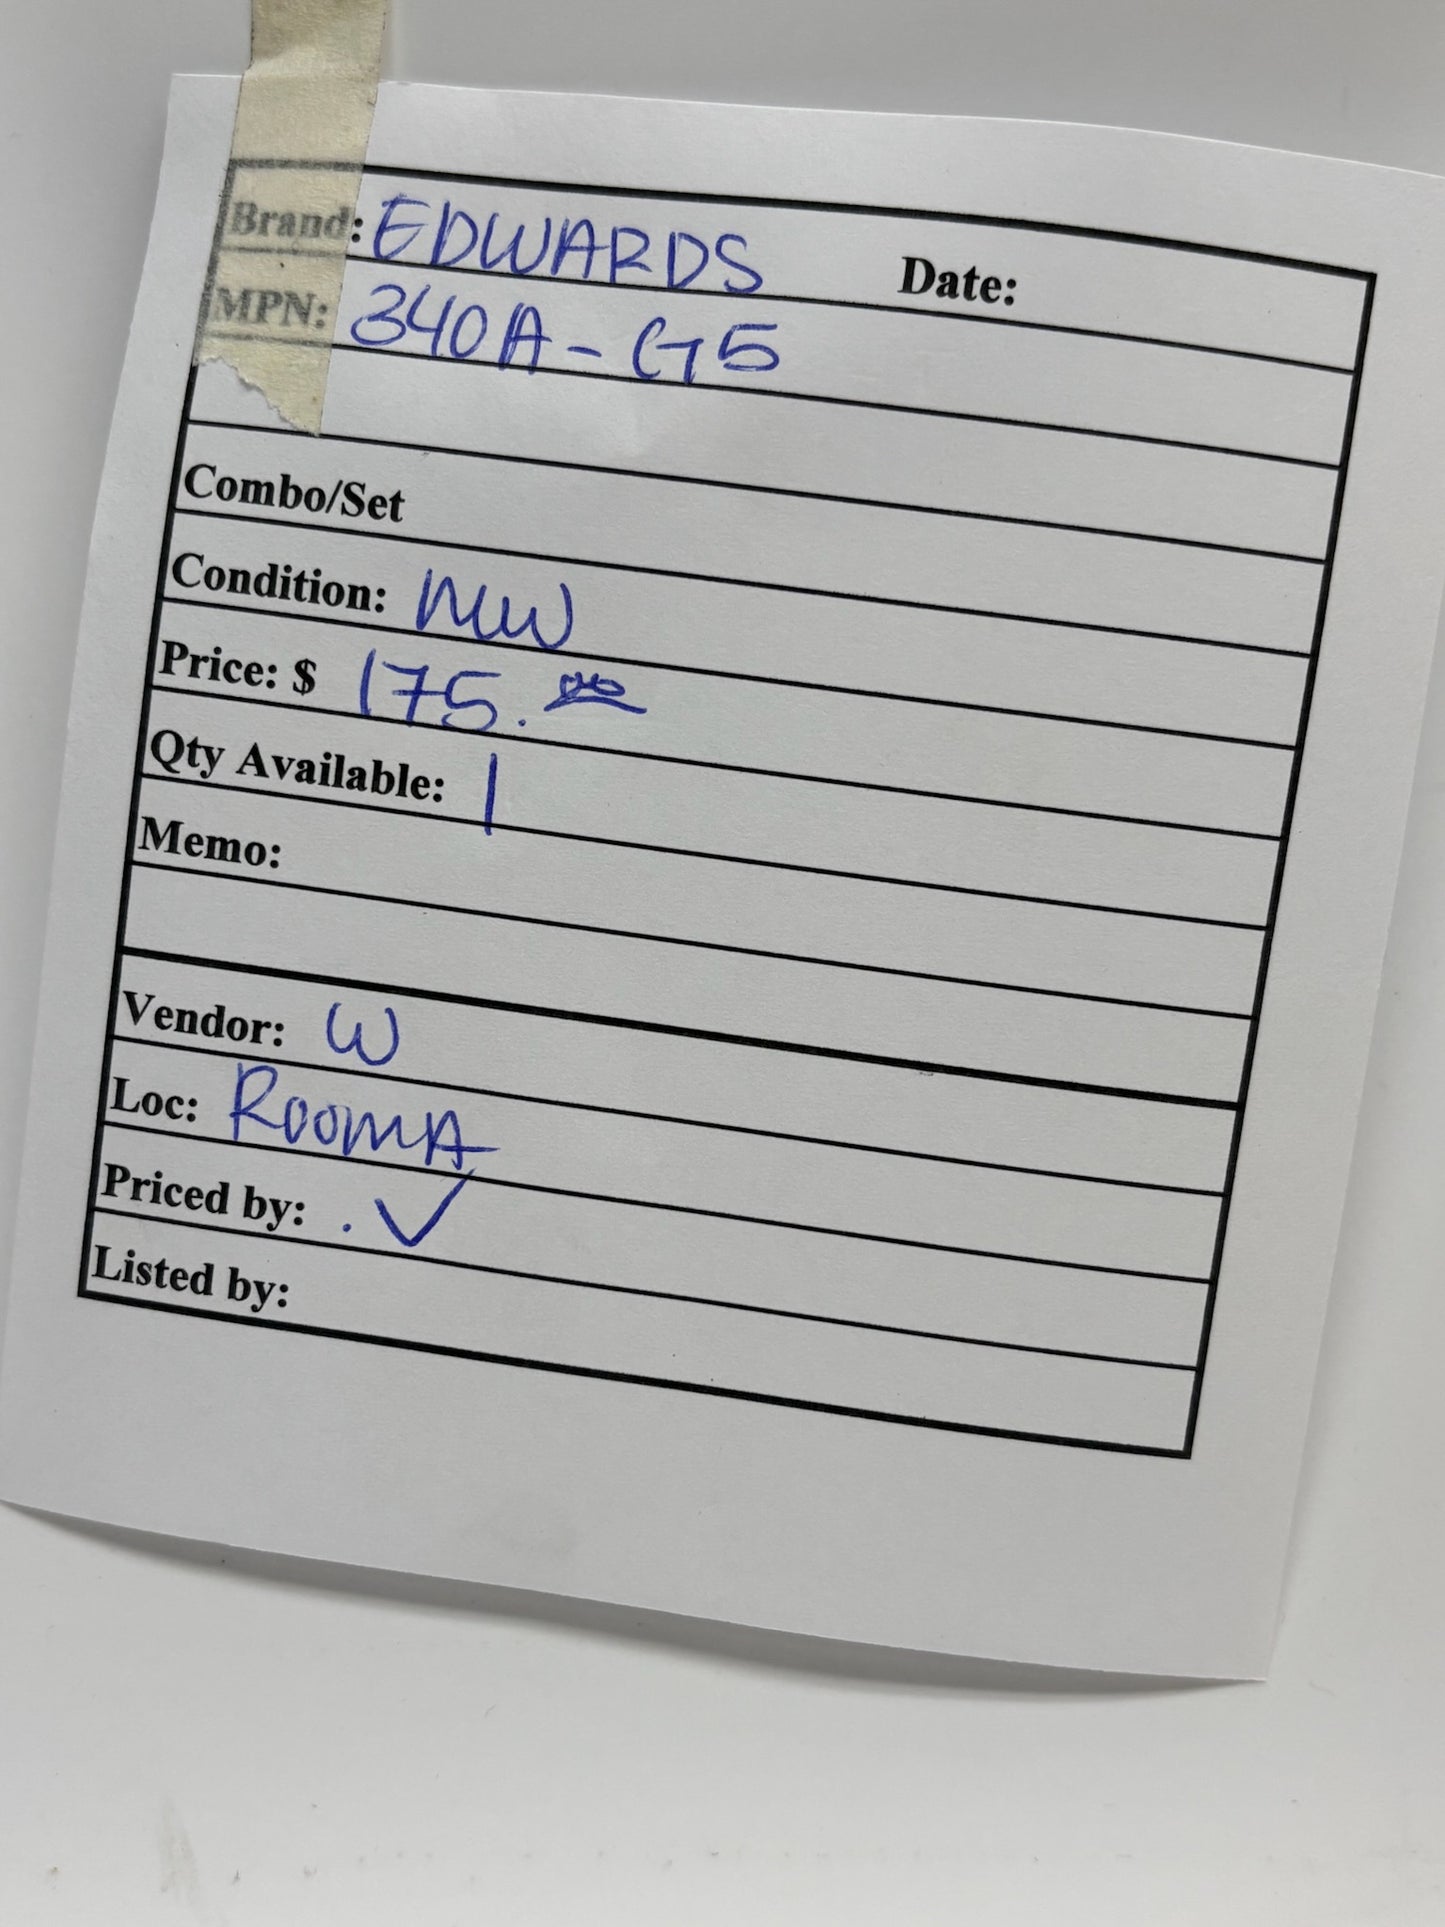 Brand: EDWARDS Date:
MPN: 340A-G5
Combo/Set
Condition: NEW
Price: $ 175.00
Qty Available: 1
Memo:
Vendor: W
Loc: ROOM A
Priced by: . ✓
Listed by: